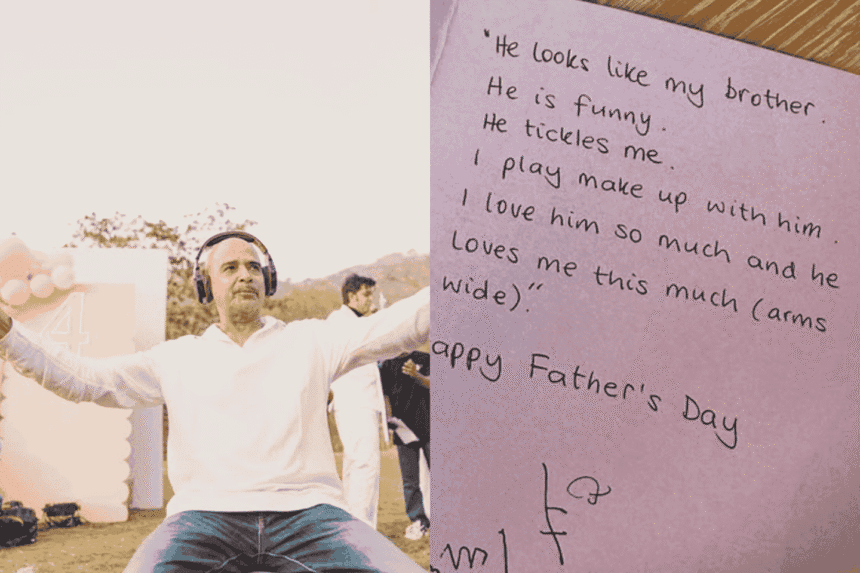 4
"He looks like my brother.
He is funny.
He tickles me.
I play make up with him.
I love him so much and he
Loves me this much (arms
wide)."
appy Father's Day